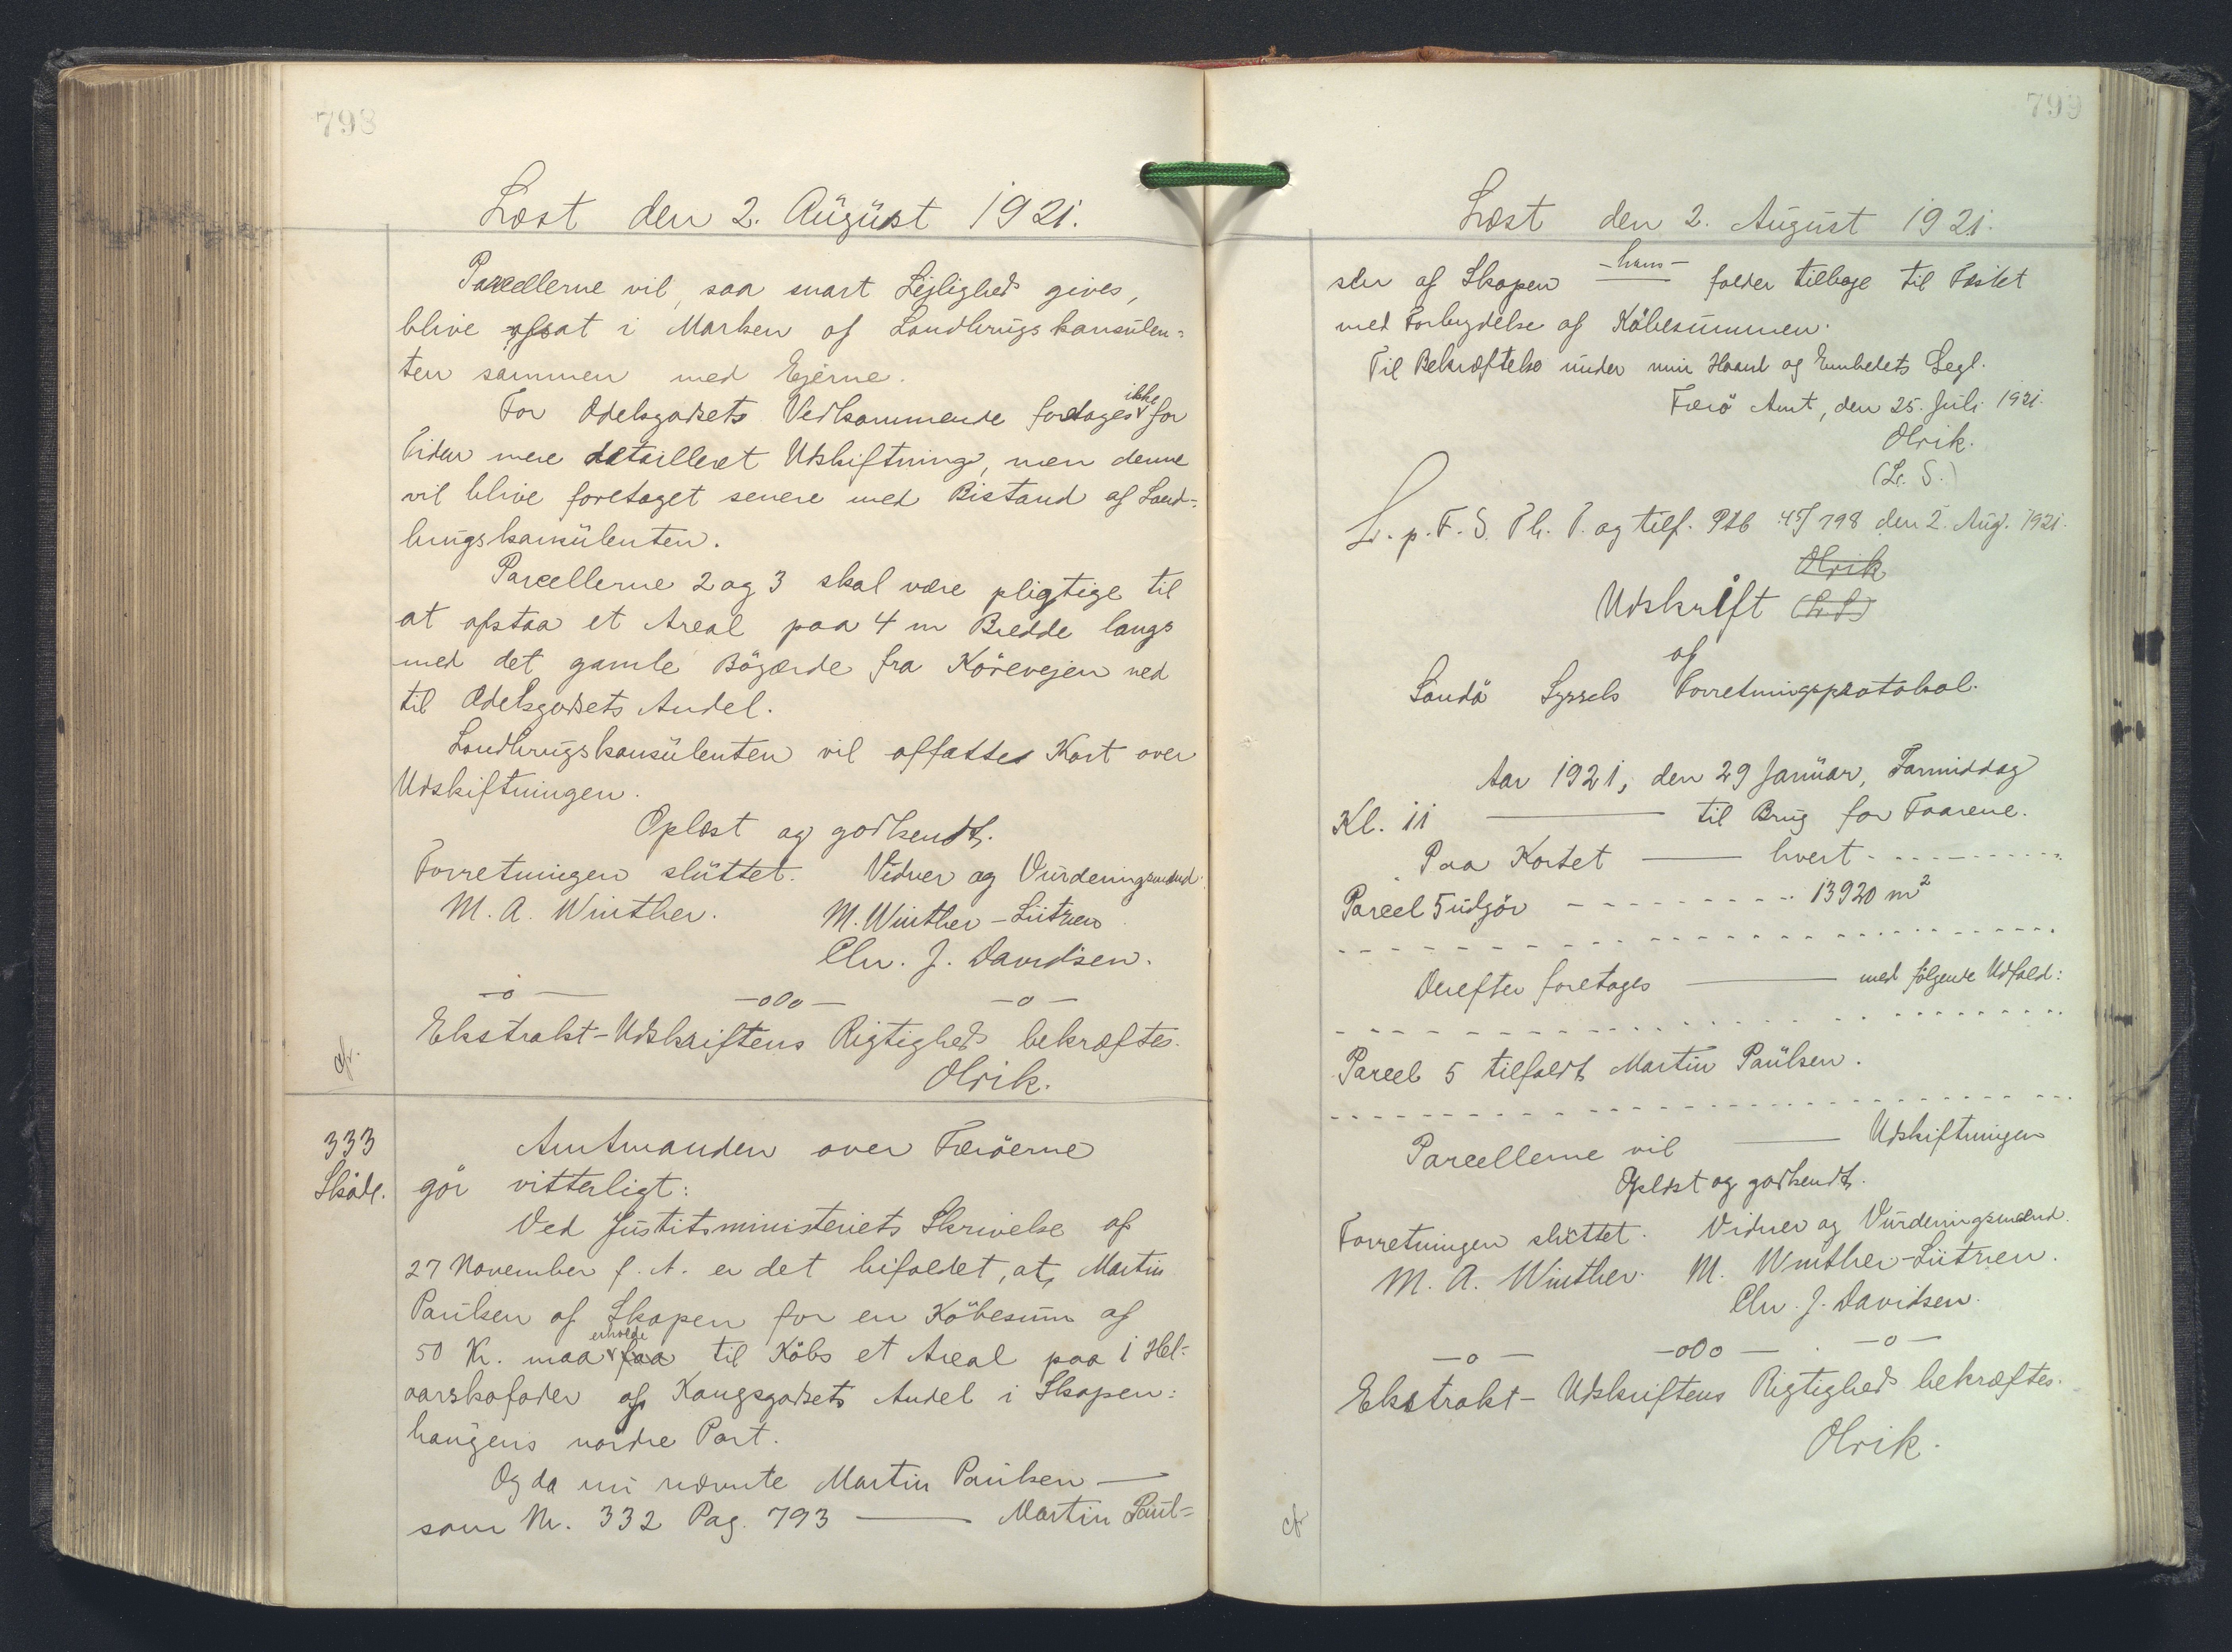 798
Læst den 2. August 1921.
Parcellerne vil, saa snart Lejlighed gives,
blive afsat i Marken af Landbrugskonsulen-
ten sammen med Ejerne.
For Odelsgodsets Vedkommende foretages ikke for
Tiden mere detailleret Udskiftning, men denne
vil blive foretaget senere med Bistand af Land-
brugskonsulenten.
Parcellerne 2 og 3 skal være pligtige til
at afstaa et Areal paa 4 m Bredde langs
med det gamle Bögærde fra Körevejen ned
til Odelsgodsets Andel.
Landbrugskonsulenten vil affatte Kort over
Udskiftningen.
Oplæst og godkendt.
Forretningen sluttet. Vidner og Vurderingsmænd.
M. A. Winther. M. Winther-Lützen
Chr. J. Davidsen.
-o- -o0o- -o-
Ekstrakt-Udskriftens Rigtighed bekræftes.
Olrik.
cfr.
333
Skøde.
Amtmanden over Færöerne
gör vitterligt:
Ved Justitsministeriets Skrivelse af
27 November f. A. er det bifaldet, at Martin
Paulsen af Skopen for en Köbesum af
50 Kr. maa erholde faa til Köbs et Areal paa 1 Hel-
aarskofoder af Kongsgodsets Andel i Skopen-
haugens nordre Part.
Og da nu nævnte Martin Paulsen —
som Nr. 332 Pag. 793 — Martin Paul-
799
Læst den 2. August 1921.
sen af Skopen — hans — falder tilbage til Fæstet
med Forbrydelse af Köbesummen.
Til Bekræftelse under min Haand og Embedets Segl.
Færö Amt, den 25. Juli 1921.
Olrik.
(L. S.)
L. p. F. S. Th. P. og tilf. Ptb 45/798 den 2. Aug. 1921.
Olrik
Udskrift (L. S.)
af
Sandö Syssels Forretningsprotokol.
Aar 1921, den 29 Januar, Formiddag
Kl. 11 — til Brug for Faarene.
Paa Kortet — hvert - - - - - - - -
Parcel 5 udgör - - - - - - - - - 13920 m²
- - - - - - - - - - - - - - - - - - - -
Derefter foretages — med följende Udfald:
- - - - - - - - - - - - - - - - - - - -
Parcel 5 tilfaldt Martin Paulsen.
- - - - - - - - - - - - - - - - - - - -
Parcellerne vil — Udskiftningen
Oplæst og godkendt.
Forretningen sluttet. Vidner og Vurderingsmænd.
M. A. Winther. M. Winther-Lützen.
Chr. J. Davidsen.
-o- -o0o- -o-
Ekstrakt-Udskriftens Rigtighed bekræftes.
Olrik.
cfr.